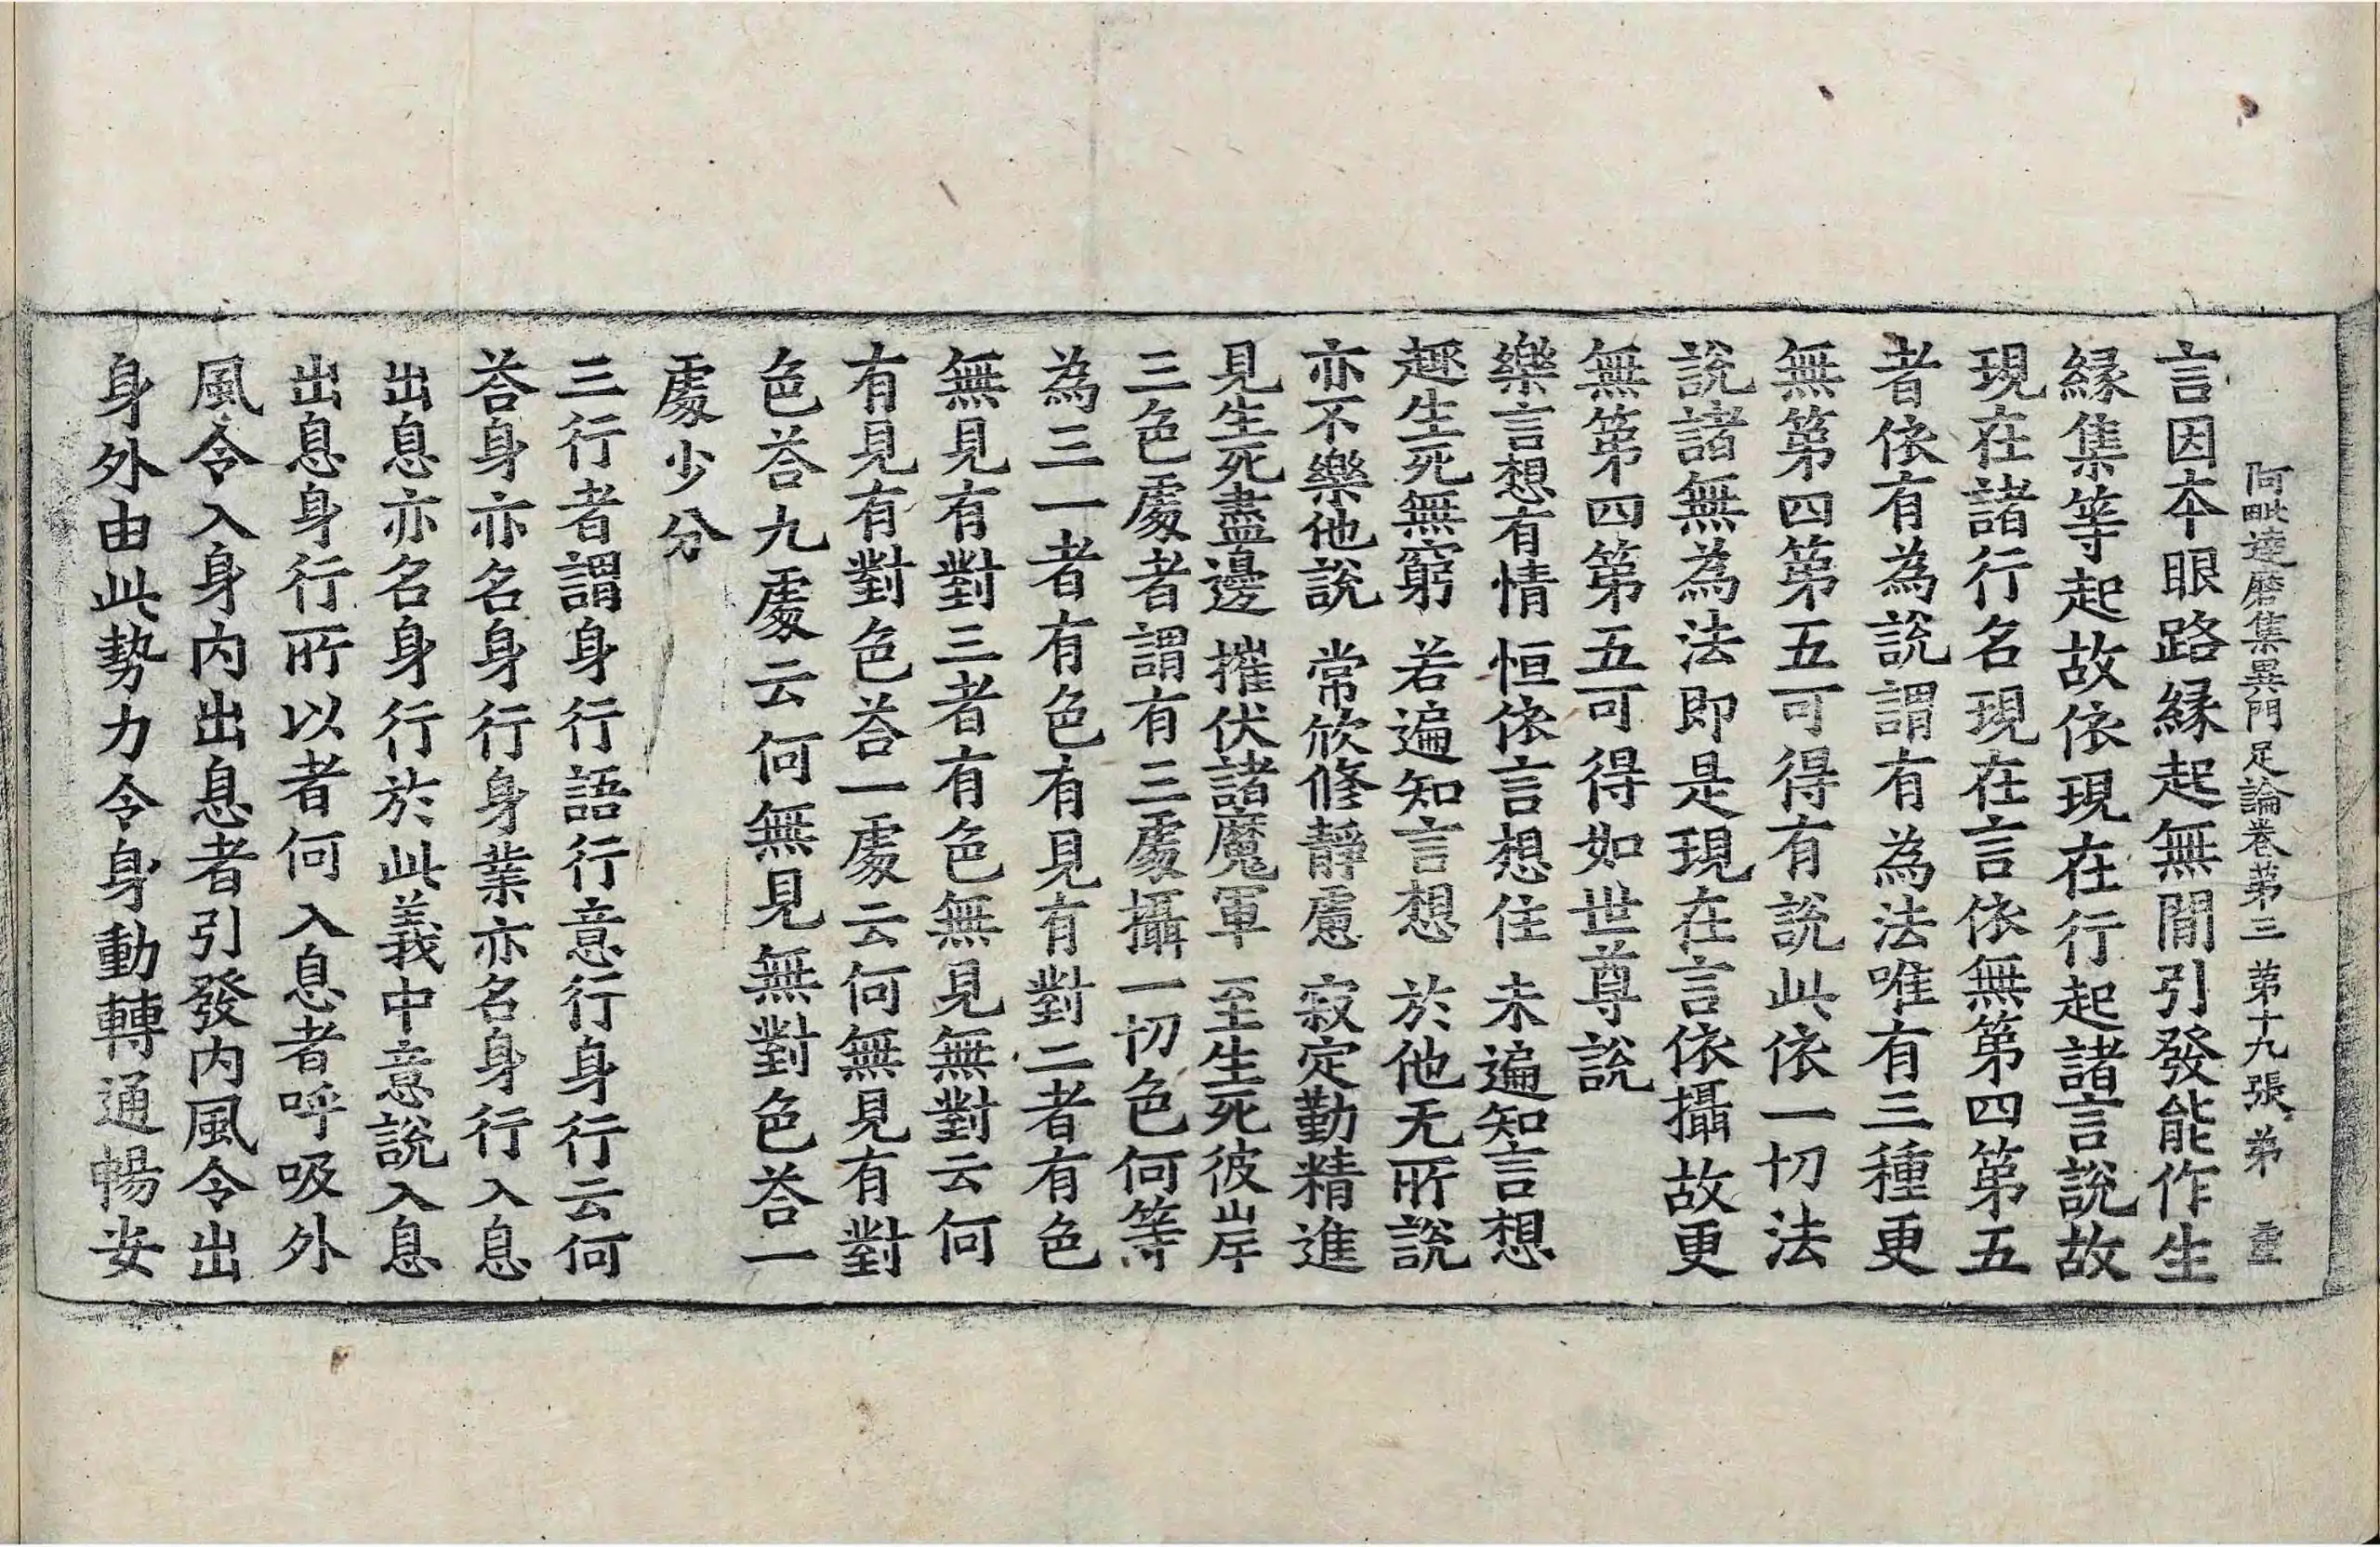 阿毗達磨集異門足論卷第三 第十九張 弟 重
言因本眼路緣起無間引發能作生
緣集等起故依現在行起諸言說故
現在諸行名現在言依無第四第五
者依有為說謂有為法唯有三種更
無第四第五可得有說此依一切法
說諸無為法即是現在言依攝故更
無第四第五可得如世尊說
樂言想有情 恒依言想住 未遍知言想
趣生死無窮 若遍知言想 於他无所說
亦不樂他說 常欣修靜慮 寂定勤精進
見生死盡邊 摧伏諸魔軍 至生死彼岸
三色處者謂有三處攝一切色何等
為三一者有色有見有對二者有色
無見有對三者有色無見無對云何
有見有對色荅一處云何無見有對
色荅九處云何無見無對色荅一
處少分
三行者謂身行語行意行身行云何
荅身亦名身行身業亦名身行入息
出息亦名身行於此義中意說入息
出息身行所以者何入息者呼吸外
風令入身內出息者引發內風令出
身外由此勢力令身動轉通暢安